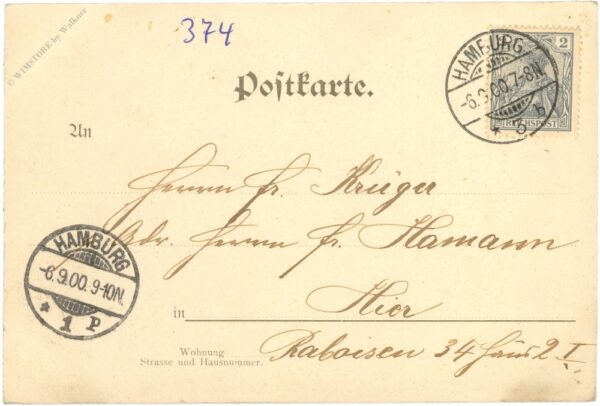 © WIMSTORE by Walkner
374
Postkarte.
2
REICHSPOST
HAMBURG
-6.9.00.7-8N.
* 5 b
An
Herrn Fr. Krüger
Adr. Herrn Fr. Hamann
HAMBURG
-6.9.00.9-10N.
* 1 P
in Hier
Wohnung
Strasse und Hausnummer.
Raboisen 34 Haus 2 I